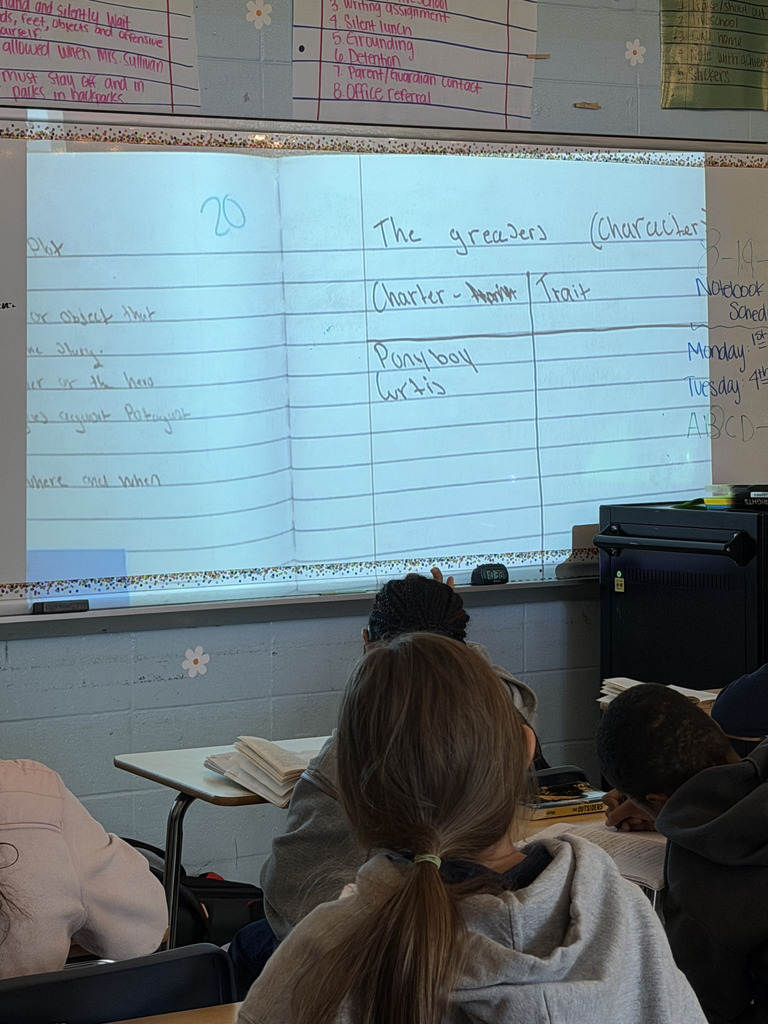 hand and Silently Wait
ds, feet, objects and offensive
ourself.
allowed when Mrs. Sullivan
must stay off and in
packs in backpacks
3. Writing assignment
4. Silent lunch
5. Grounding
6. Detention
7. Parent/Guardian contact
8. Office referral
1. Praise/shout out
stickers
20
Plot
or object that
he story.
er or the hero
where and when
The greasers (Character)
Charter - Trait
Ponyboy
Curtis
3-14-
Notebook
Sched
Monday: 1st
Tuesday: 4th
ABCD-
THE OUTSIDERS